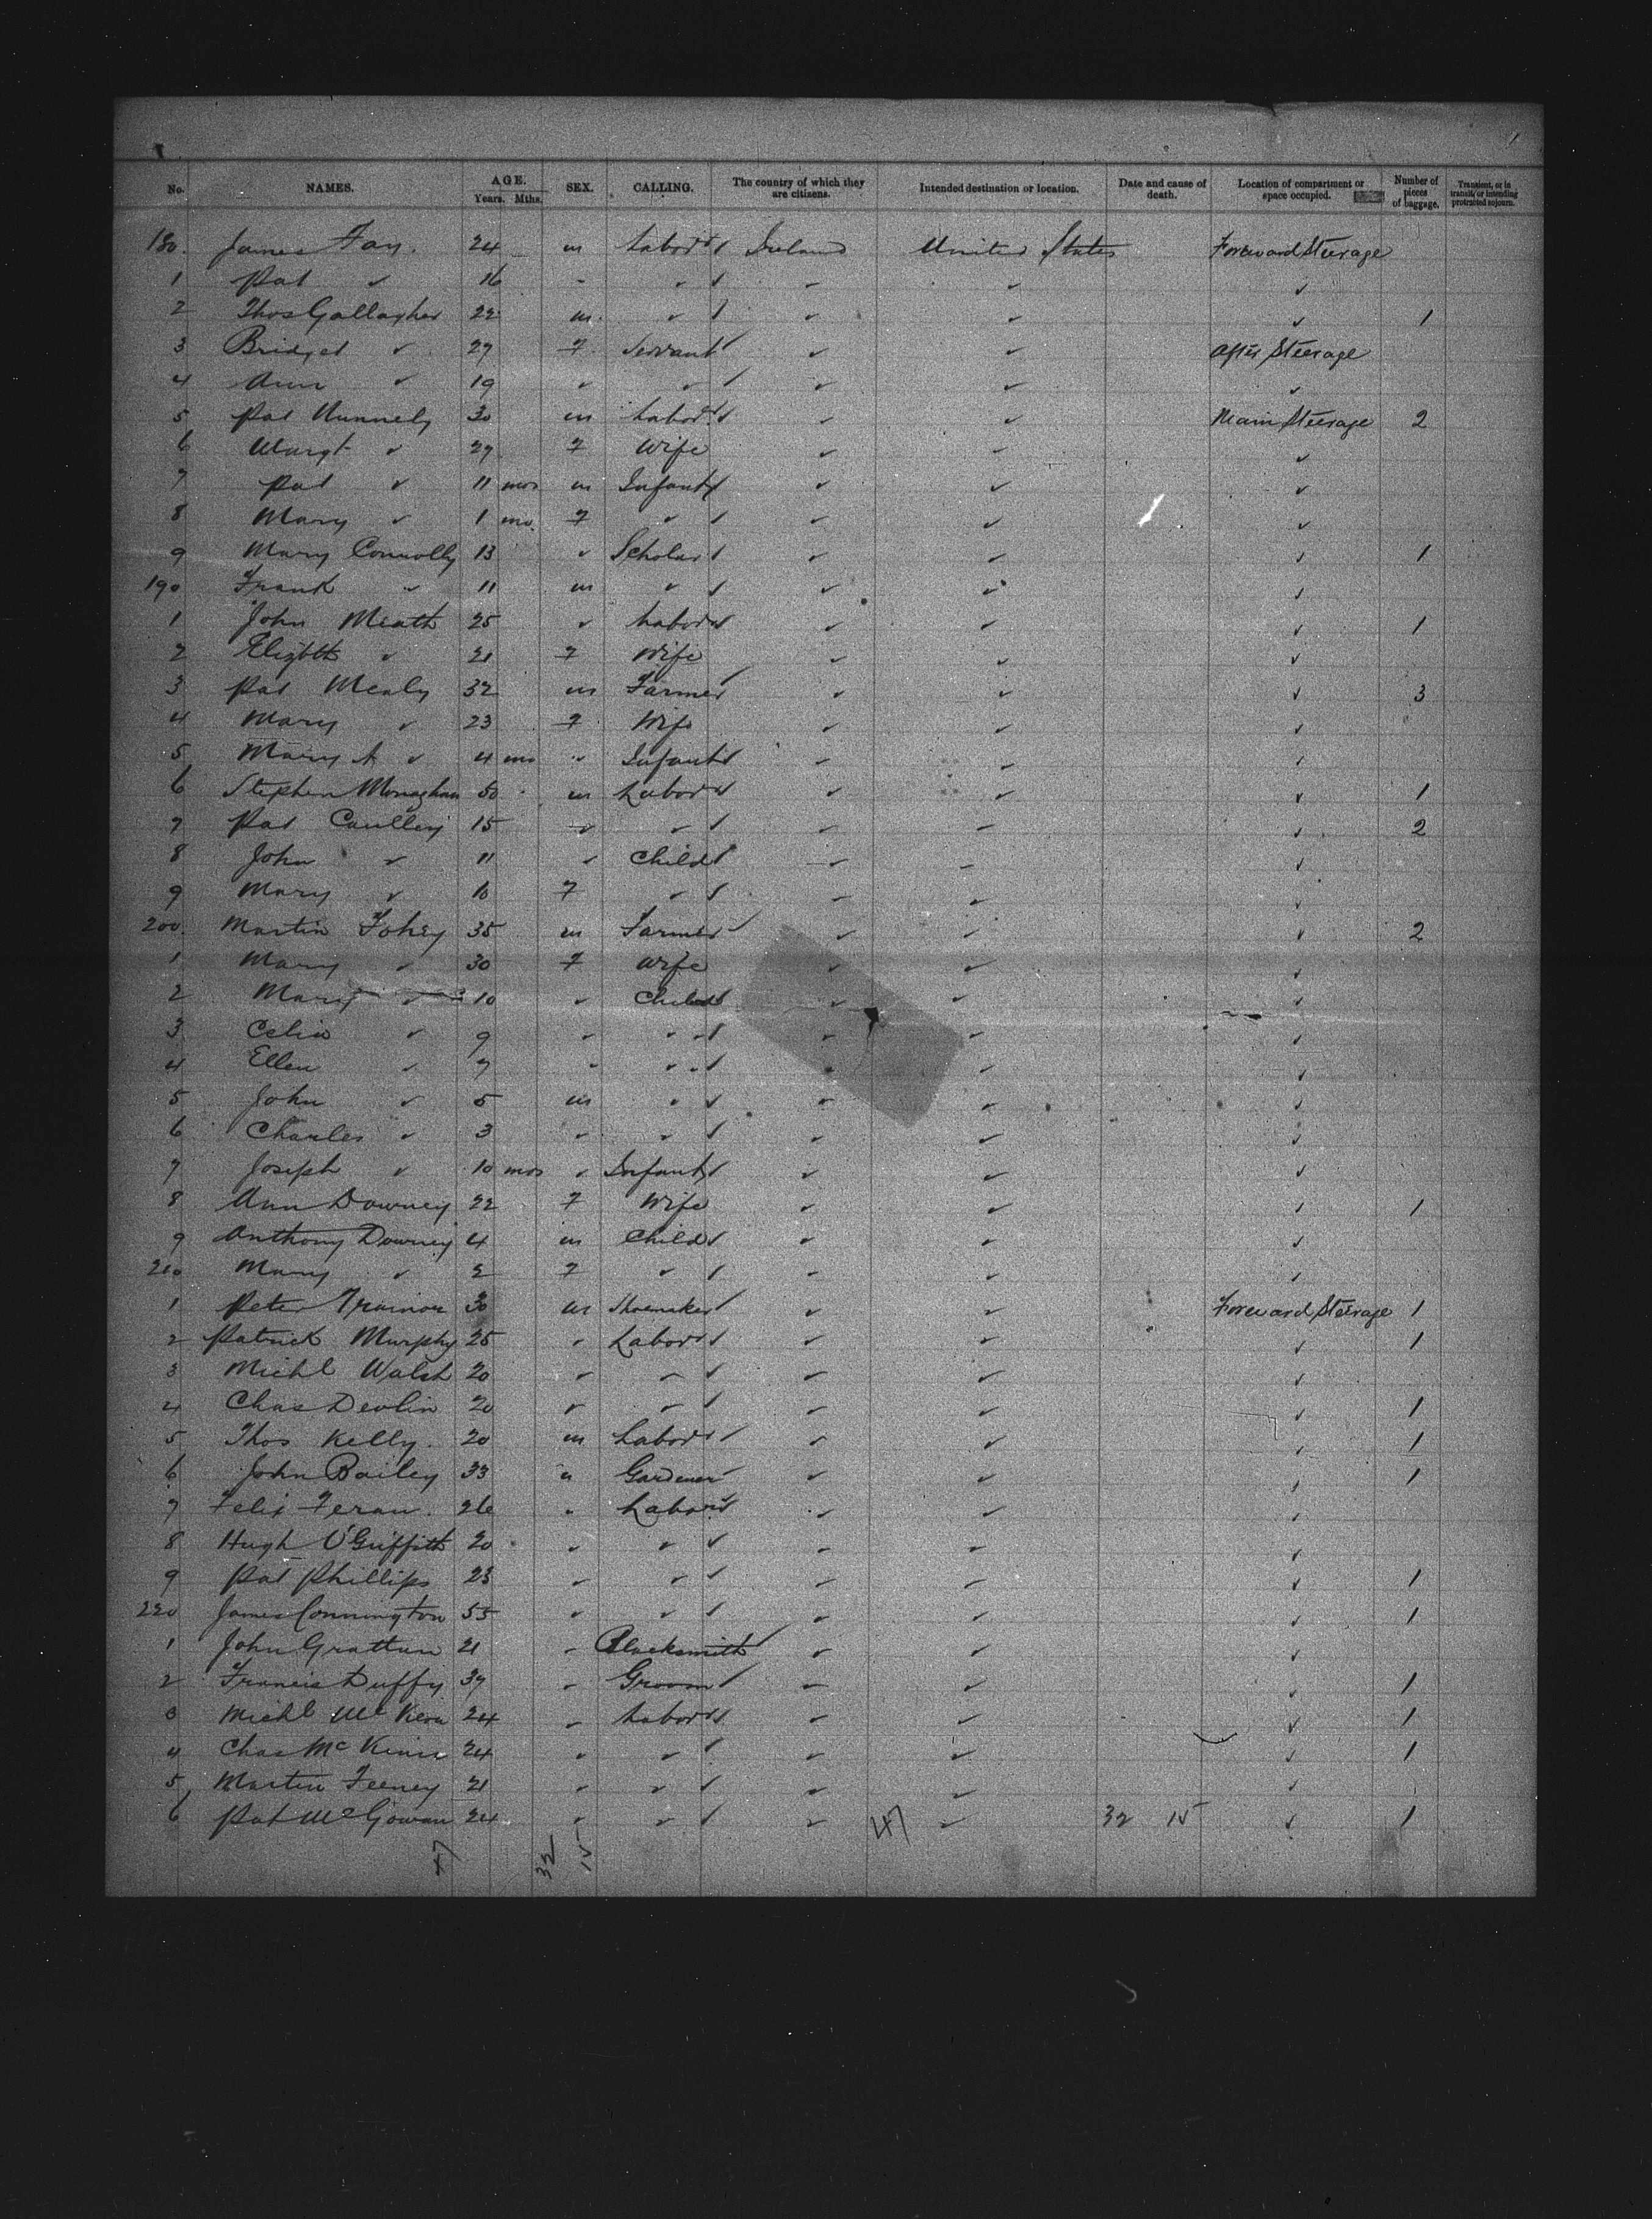 No. NAMES. AGE. Years. Mths. SEX. CALLING. The country of which they are citizens. Intended destination or location. Date and cause of death. Location of compartment or space occupied. Number of pieces of baggage. Transient, or in transit, or intending protracted sojourn.
180. James Fay. 24 m Labor Ireland United States Forward Steerage
1 Pat ✓ 16 - ✓ ✓ ✓ ✓
2 Thos Gallagher 22 m. ✓ ✓ ✓ ✓ 1
3 Bridget ✓ 27 F Servant ✓ ✓ After Steerage
4 Ann ✓ 19 ✓ ✓ ✓ ✓ ✓
5 Pat 30 m Labor ✓ ✓ Main Steerage 2
6 Margt ✓ 27 F Wife ✓ ✓ ✓
7 Pat ✓ 11 mos m Infant ✓ ✓ ✓
8 Mary ✓ 1 mo. F ✓ ✓ ✓ ✓
9 Mary Connolly 13 ✓ Scholar ✓ ✓ ✓ 1
190 Frank ✓ 11 m ✓ ✓ ✓ ✓
1 John Meath 25 ✓ Labor ✓ ✓ ✓ 1
2 Elizbth ✓ 21 F Wife ✓ ✓ ✓
3 Pat Mealy 32 m Farmer ✓ ✓ ✓ 3
4 Mary ✓ 23 F Wife ✓ ✓ ✓
5 Mary A ✓ 4 mo ✓ Infant ✓ ✓ ✓
6 Stephen Monaghan 50 m Labor ✓ ✓ ✓ 1
7 Pat Caulley 15 ✓ ✓ ✓ ✓ ✓ 2
8 John ✓ 11 ✓ Child ✓ ✓ ✓
9 Mary ✓ 10 F ✓ ✓ ✓ ✓
200. Martin Fohey 35 m Farmer ✓ ✓ ✓ 2
1 Mary ✓ 30 F Wife ✓ ✓ ✓
2 Mary ✓ 10 ✓ Child ✓ ✓ ✓
3 Celia ✓ 9 ✓ ✓ ✓ ✓ ✓
4 Ellen ✓ 7 ✓ ✓ ✓ ✓ ✓
5 John ✓ 5 m ✓ ✓ ✓ ✓
6 Charles ✓ 3 ✓ ✓ ✓ ✓ ✓
7 Joseph ✓ 10 mos ✓ Infant ✓ ✓ ✓
8 Ann Downey 22 F Wife ✓ ✓ ✓ 1
9 Anthony Downey 4 m Child ✓ ✓ ✓
210 Mary ✓ 2 F ✓ ✓ ✓ ✓
1 Peter Trainor 30 m Shoemaker ✓ ✓ Forward Steerage 1
2 Patrick Murphy 25 ✓ Labor ✓ ✓ ✓ 1
3 Michl Walsh 20 ✓ ✓ ✓ ✓ ✓
4 Chas Devlin 20 ✓ ✓ ✓ ✓ ✓ 1
5 Thos Kelly. 20 m Labor ✓ ✓ ✓ 1
6 John Bailey 33 " Gardener ✓ ✓ ✓ 1
7 Felix Feran. 26 " Labor ✓ ✓ ✓
8 Hugh O'Griffith 20 ✓ ✓ ✓ ✓ ✓
9 Pat Phillips 23 ✓ ✓ ✓ ✓ ✓ 1
220 James Connington 55 ✓ ✓ ✓ ✓ ✓ 1
1 John Grattan 21 ✓ Blacksmith ✓ ✓ ✓
2 Francis Duffy 37 ✓ Groom ✓ ✓ ✓ 1
3 Michl 24 ✓ Labor ✓ ✓ ✓ 1
4 Chas 24 ✓ ✓ ✓ ✓ ✓ 1
5 Martin Feeney 21 ✓ ✓ ✓ ✓ ✓
6 Pat McGowan 24 ✓ ✓ ✓ 47 ✓ 32 15 ✓ 1
47 32 15